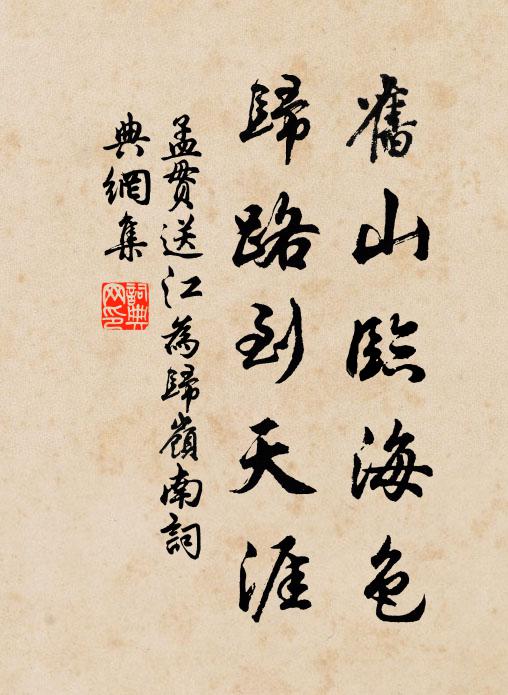 舊山臨海色
歸路到天涯
孟貫送江為歸嶺南詞
典網集
詞典
网印